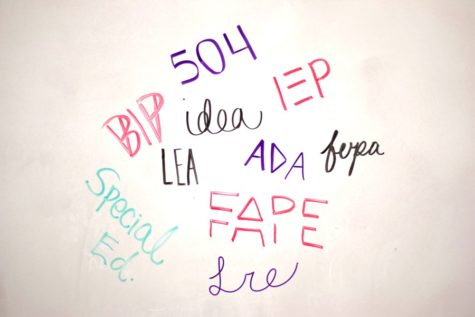 504
IEP
BIP
idea
LEA
ADA
ferpa
FAPE
Special
Ed.
Lre